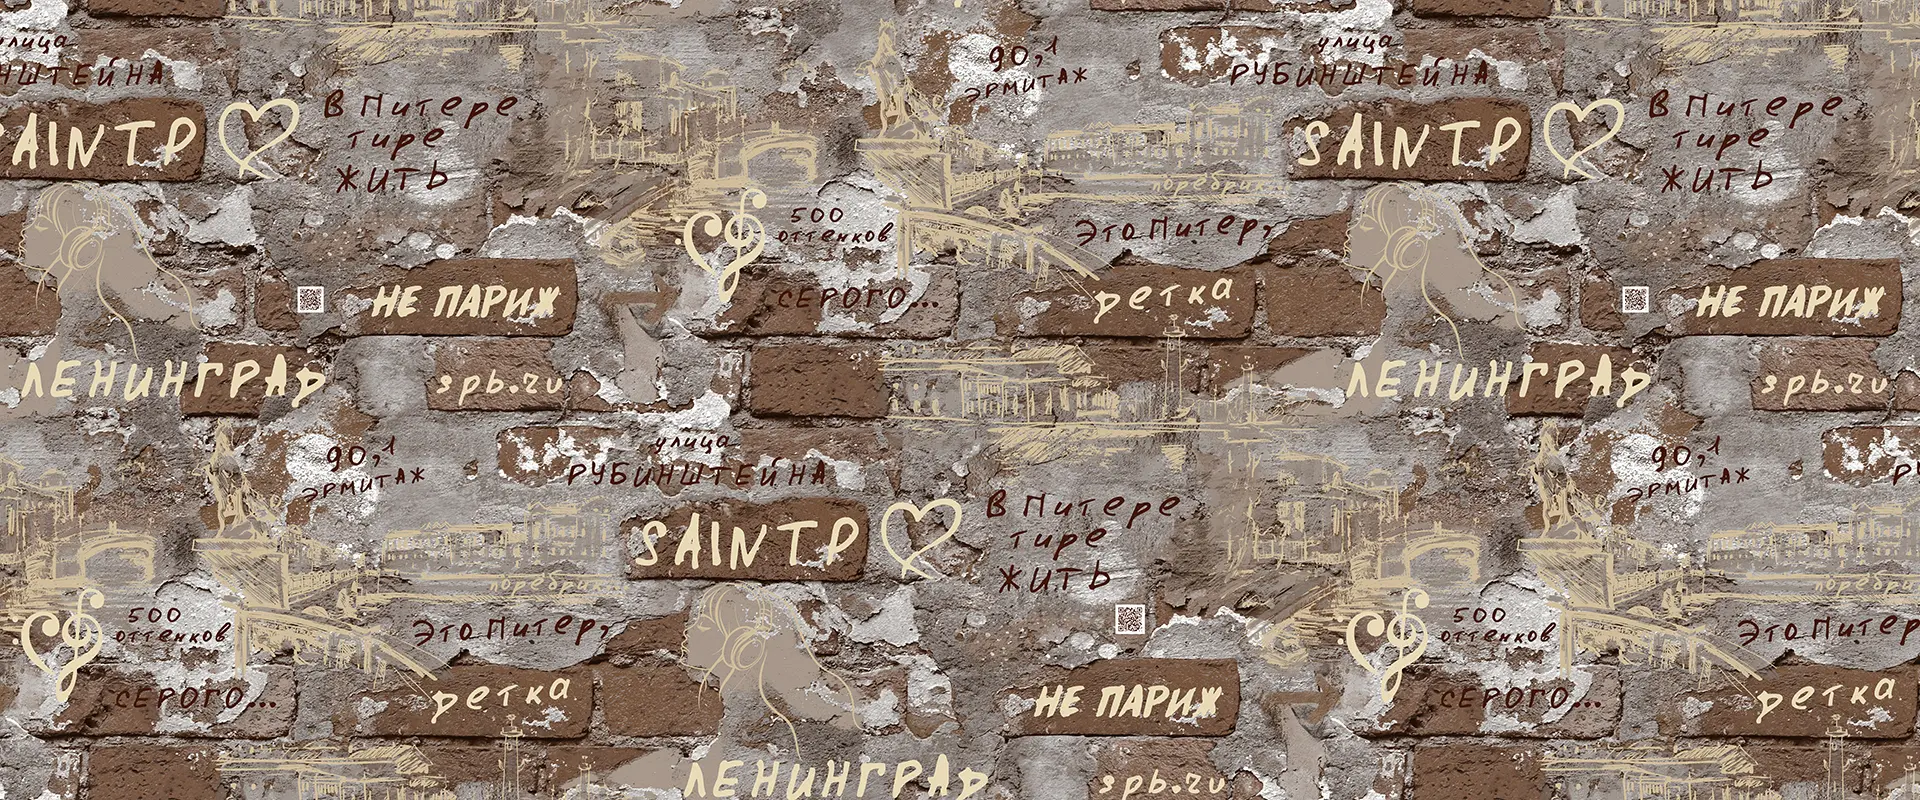 улица
НШТЕЙНА
SAINTP
В Питере
тире
жить
90,1
ЭРМИТАЖ
улица
РУБИНШТЕЙНА
SAINTP
В Питере
тире
жить
поребрик
500
оттенков
СЕРОГО...
Это Питер,
детка
НЕ ПАРИЖ
НЕ ПАРИЖ
ЛЕНИНГРАД
spb.ru
ЛЕНИНГРАД
spb.ru
90,1
ЭРМИТАЖ
улица
РУБИНШТЕЙНА
SAINTP
В Питере
тире
жить
90,1
ЭРМИТАЖ
поребрик
поребрик
500
оттенков
СЕРОГО...
Это Питер,
детка
500
оттенков
СЕРОГО...
Это Питер
детка
НЕ ПАРИЖ
ЛЕНИНГРАД
spb.ru